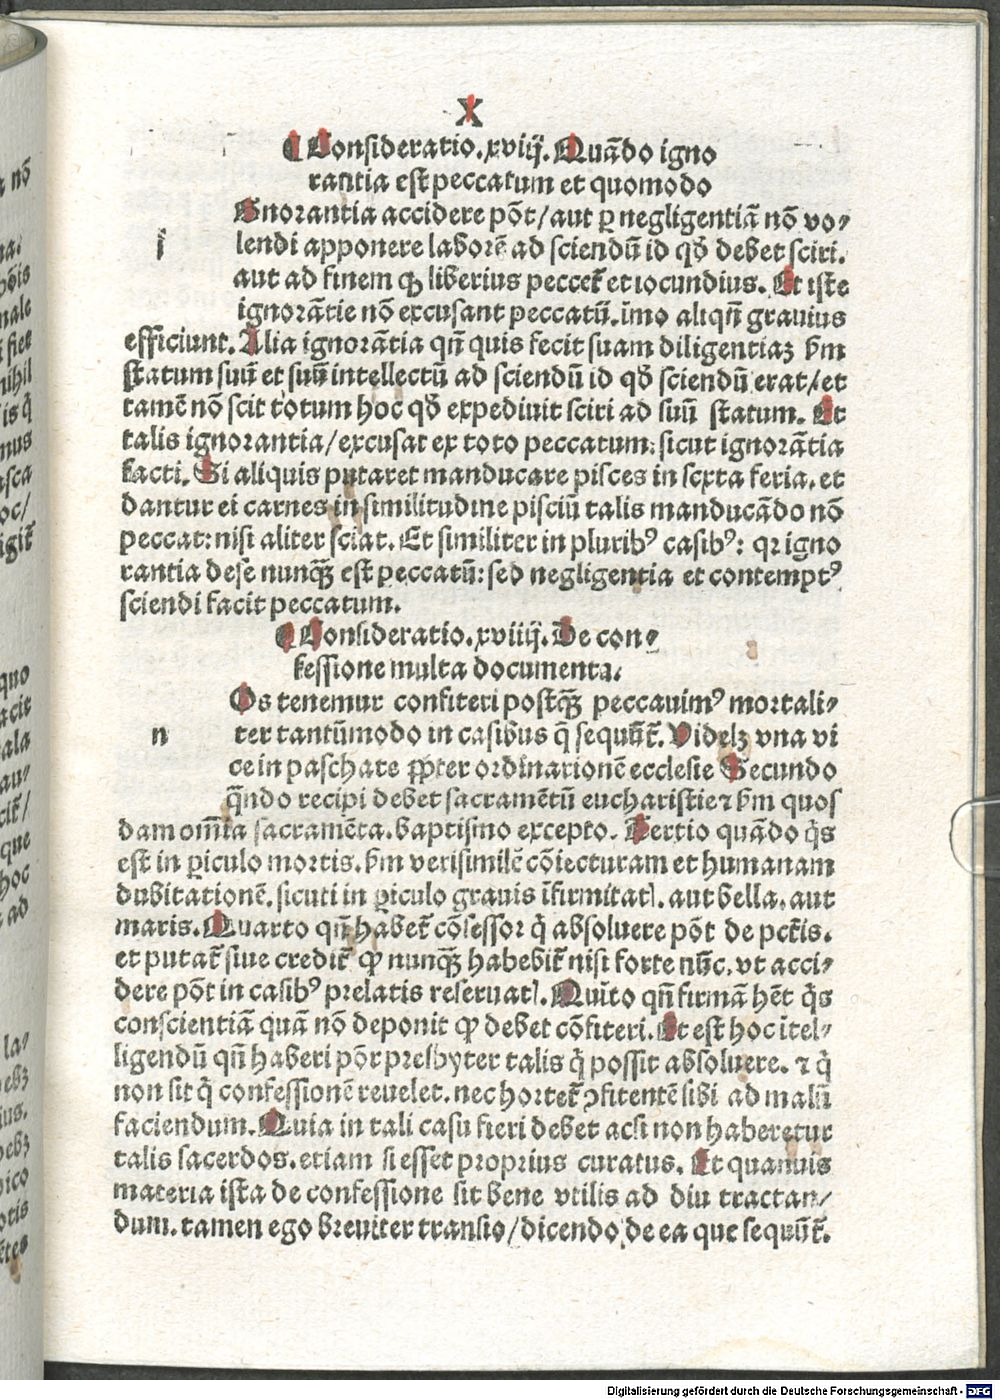 X
¶ Consideratio.xviij. Quãdo igno
rantia est peccatum et quomodo
Gnorantia accidere põt/aut ꝑ negligentiã nõ vo⸗
i lendi apponere laborẽ ad sciendũ id qđ debet sciri.
aut ad finem ꝙ liberius peccet̃ et iocundius. Et iste
ignorãtie nõ excusant peccatũ. imo aliqñ grauius
efficiunt. Alia ignorãtia qñ quis fecit suam diligentiaʒ ẜm
statum suũ et suũ intellectũ ad sciendũ id qđ sciendũ erat/et
tamẽ nõ scit totum hoc qđ expediuit sciri ad suũ statum. Et
talis ignorantia/excusat ex toto peccatum: sicut ignorãtia
facti. Si aliquis putaret manducare pisces in sexta feria. et
dantur ei carnes in similitudine pisciũ talis manducãdo nõ
peccat: nisi aliter sciat. Et similiter in pluribꝰ casibꝰ: qꝛ igno
rantia de se nunq̃ʒ est peccatũ: sed negligentia et contemptꝰ
sciendi facit peccatum.
¶ Consideratio.xviiij. De con⸗
fessione multa documenta.
Os tenemur confiteri postq̃ʒ peccauimꝰ mortali⸗
n ter tantũmodo in casibus q̃ sequũt̃. Videlʒ vna vi
ce in paschate ꝓpter ordinationẽ ecclesie Secundo
q̃ndo recipi debet sacramẽtũ eucharistie ⁊ ẜm quos
dam om̃ia sacramẽta. baptismo excepto. Tertio quãdo q̃s
est in ꝑiculo mortis. ẜm verisimilẽ cõiecturam et humanam
dubitationẽ. sicuti in ꝑiculo grauis ĩfirmitatꝭ. aut bella. aut
maris. Quarto qñ habet̃ cõfessor q̃ absoluere põt de pct̃is.
et putat̃ siue credit̃ ꝙ nunq̃ʒ habebit̃ nisi forte nũc. vt acci⸗
dere põt in casibꝰ prelatis reseruatꝭ. Quĩto qñ firmã hẽt q̃s
conscientiã quã nõ deponit ꝙ debet cõfiteri. Et est hoc ĩtel⸗
ligendũ qñ haberi põt presbyter talis q̃ possit absoluere. ⁊ q̃
non sit q̃ confessionẽ reuelet. nec hortet̃ ꝯfitentẽ sibi ad malũ
faciendum. Quia in tali casu fieri debet acsi non haberetur
talis sacerdos. etiam si esset proprius curatus. Et quamuis
materia ista de confessione sit bene vtilis ad diu tractan⸗
dum. tamen ego breuiter transio/dicendo de ea que sequũt̃.
Digitalisierung gefördert durch die Deutsche Forschungsgemeinschaft - DFG